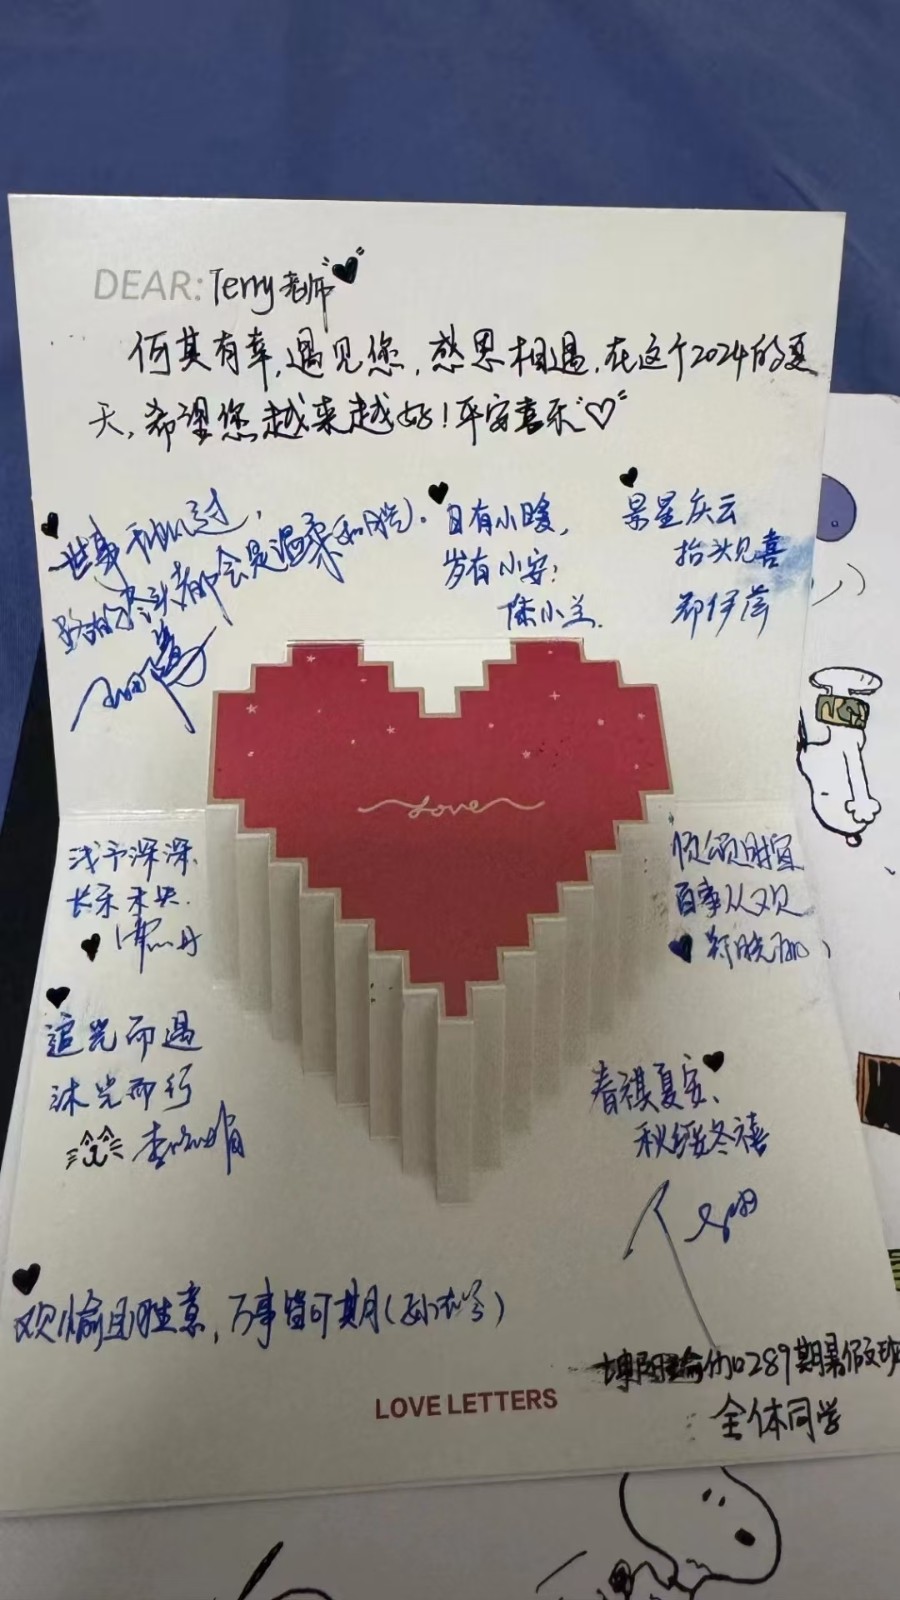 DEAR: Terry老师
何其有幸,遇见您,感恩相遇,在这个2024的夏
天,希望您越来越好!平安喜乐
世事
路的尽头都会是温柔和月光.
日有小暖,
岁有小安;
陈小兰.
景星庆云
抬头见喜
郑伊
浅予深深,
长乐未央.
丹
顷颂时宜
百事从欢
郑晓
追光而遇
沐光而行
李
春祺夏安、
秋绥冬禧
欢愉且胜意,万事皆可期(孙
瑜伽0289期暑假班
全体同学
Love
LOVE LETTERS